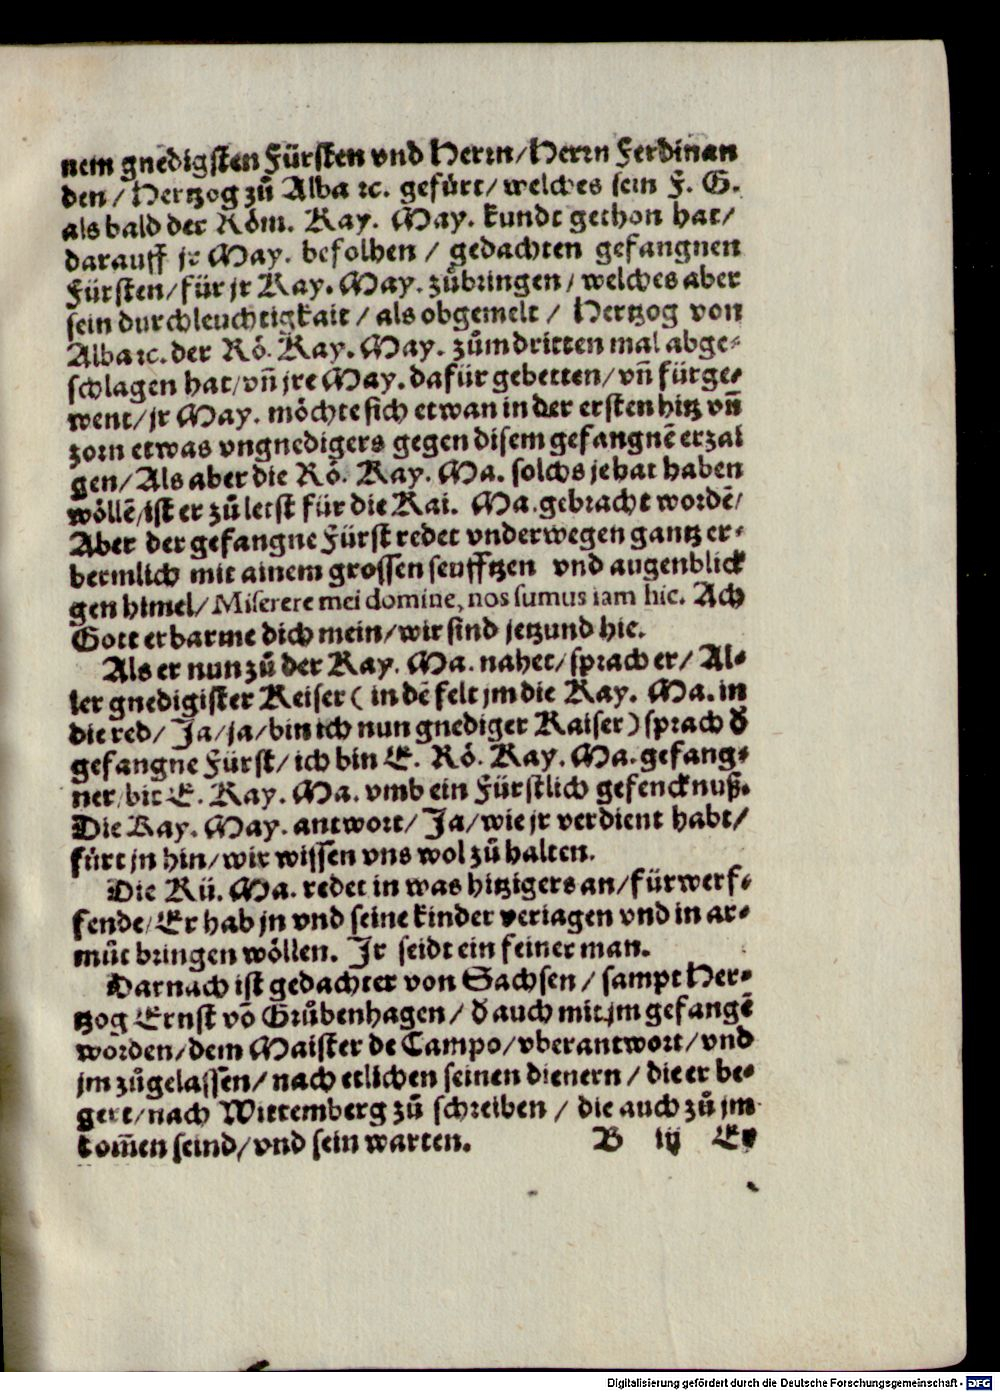 nem gnedigsten Fürsten vnd Herrn/Herrn Ferdinan
den/Hertzog zů Alba ꝛc. gefürt/welches sein F. G.
als bald der Röm. Kay. May. kundt gethon hat/
darauff jr May. befolhen / gedachten gefangnen
Fürsten/für jr Kay. May. zůbringen/welches aber
sein durchleuchtigkait / als obgemelt / Hertzog von
Alba ꝛc. der Rö. Kay. May. zům dritten mal abge-
schlagen hat/vñ jre May. dafür gebetten/vñ fürge-
went/jr May. möchte sich etwan in der ersten hitz vñ
zorn etwas vngnedigers gegen disem gefangnē erzai
gen/Als aber die Rö. Kay. Ma. solchs je hat haben
wöllē/ist er zů letst für die Kai. Ma. gebracht wordē/
Aber der gefangne Fürst redet vnderwegen gantz er-
bermlich mit ainem grossen seufftzen vnd augenblick
gen himel/Miserere mei domine, nos sumus iam hic. Ach
Gott erbarme dich mein/wir sind jetzund hie.
Als er nun zů der Kay. Ma. nahet/sprach er/Al-
ler gnedigister Keiser ( in dē felt jm die Kay. Ma. in
die red/ Ja/ja/bin ich nun gnediger Kaiser) sprach d̄
gefangne Fürst/ich bin E. Rö. Kay. Ma. gefang-
ner/bit E. Kay. Ma. vmb ein Fürstlich gefencknuß.
Die Kay. May. antwort/ Ja/wie jr verdient habt/
fürt jn hin/wir wissen vns wol zů halten.
Die Kü. Ma. redet in was hitzigers an/fürwerf-
fende/Er hab jn vnd seine kinder veriagen vnd in ar-
můt bringen wöllen. Jr seidt ein feiner man.
Darnach ist gedachter von Sachsen / sampt Her-
tzog Ernst vō Grůbenhagen / d̄ auch mit jm gefangē
worden/dem Maister de Campo/vberantwort/vnd
jm zůgelassen/nach etlichen seinen dienern / die er be-
gert/nach Wittemberg zů schreiben / die auch zů jm
kom̄en seind/vnd sein warten. B iij Er
Digitalisierung gefördert durch die Deutsche Forschungsgemeinschaft - DFG